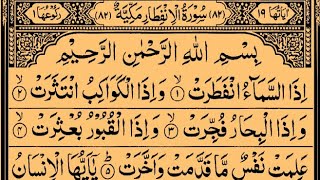 اٰیَاتُهَا ١٩ (٨٢) سُوْرَةُ الْاِنْفِطَارِ مَكِّیَّةٌ (٨٢) رُكُوْعُهَا ١
بِسْمِ اللّٰهِ الرَّحْمٰنِ الرَّحِیْمِ
اِذَا السَّمَآءُ انْفَطَرَتْ ۙ﴿۱﴾ وَاِذَا الْكَوَاكِبُ انْتَثَرَتْ ۙ﴿۲﴾
وَاِذَا الْبِحَارُ فُجِّرَتْ ۙ﴿۳﴾ وَاِذَا الْقُبُوْرُ بُعْثِرَتْ ۙ﴿۴﴾
عَلِمَتْ نَفْسٌ مَّا قَدَّمَتْ وَاَخَّرَتْ ؕ﴿۵﴾ یٰۤاَیُّهَا الْاِنْسَانُ